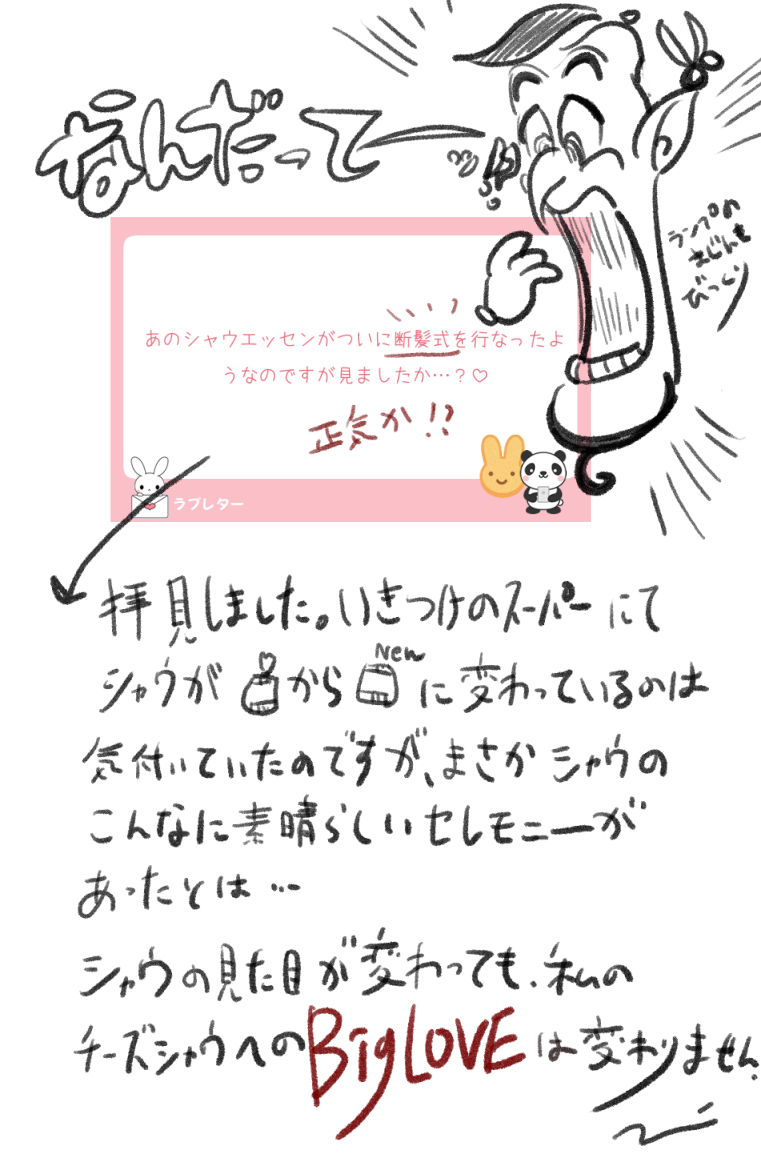 なんだってー
ランプの
まじんも
びっくり
あのシャウエッセンがついに断髪式を行なったよ
うなのですが見ましたか…？♡
正気か!?
ラブレター
拝見しました。いきつけのスーパーにて
New
シャウが から に変わっているのは
気付いていたのですが、まさかシャウの
こんなに素晴らしいセレモニーが
あったとは…
シャウの見た目が変わっても、私の
チーズシャウへのBigLOVEは変わりません。